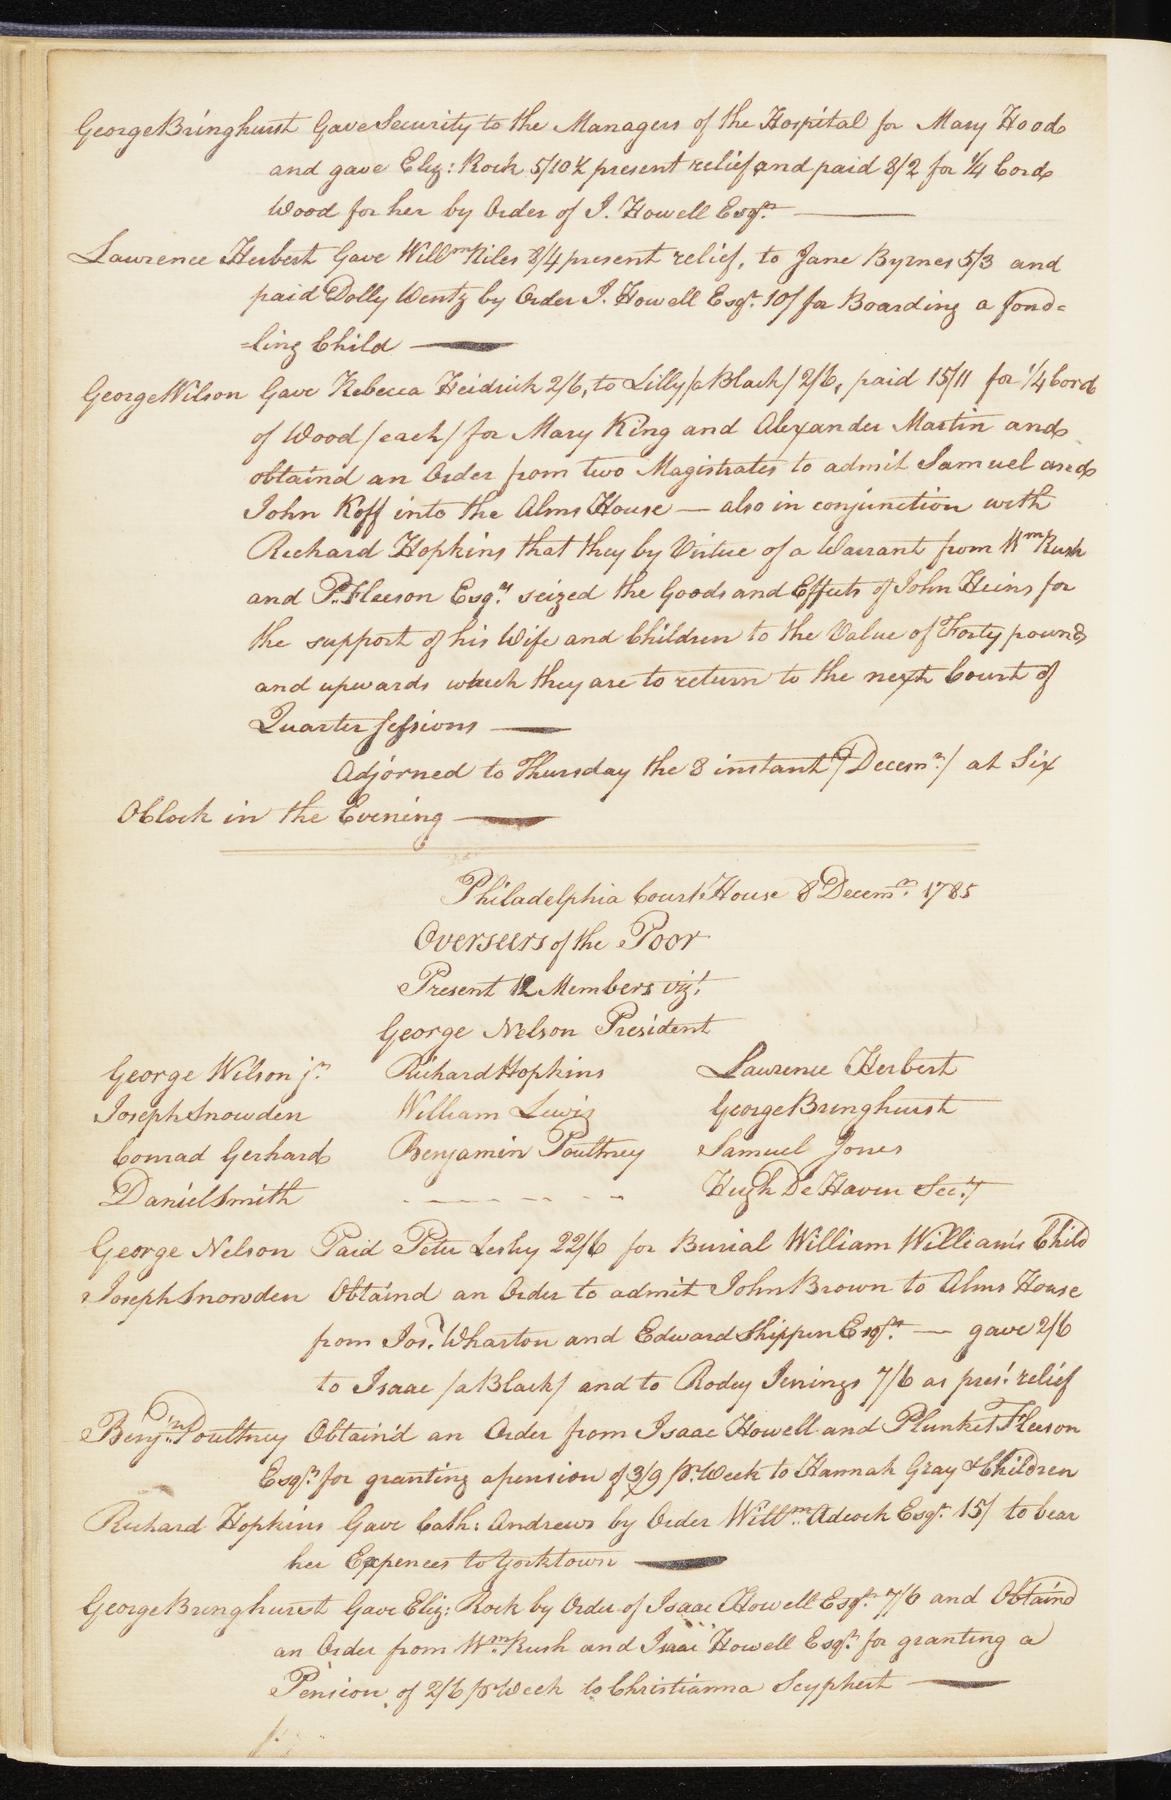 George Bringhurst Gave Security to the Managers of the Hospital for Mary Hood
and gave Eliz: Rock 5/10½ present relief and paid 8/2 for ¼ Cord
Wood for her by Order of I. Howell Esqr.
Lawrence Herbert Gave Willm Niles 8/4 present relief, to Jane Byrnes 5/3 and
paid Dolly Wentz by Order I. Howell Esqr. 10/ for Boarding a fond=
=ling Child
George Wilson Gave Rebecca Heidrick 2/6, to Lilly /a Black/ 2/6, paid 15/11 for ¼ Cord
of Wood /each/ for Mary King and Alexander Martin and
obtaind an Order from two Magistrates to admit Samuel and
John Koff into the Alms House — also in conjunction with
Richard Hopkins that they by Virtue of a Warrant from Wm Rush
and P. Fleeson Esqrs. seized the Goods and Effects of John Heins for
the support of his Wife and Children to the Value of Forty pounds
and upwards which they are to return to the next Court of
Quarter Sessions
Adjorned to Thursday the 8 instant /Decemr./ at Six
OClock in the Evening
Philadelphia Court House 8 Decemr. 1785
Overseers of the Poor
Present 12 Members vizt.
George Nelson President
George Wilson jr. Richard Hopkins Lawrence Herbert
Joseph Snowden William Lewis George Bringhurst
Conrad Gerhard Benjamin Poultney Samuel Jones
Daniel Smith - - - - - - - Hugh De Haven Secy.
George Nelson Paid Peter Lesley 22/6 for Burial William William's Child
Joseph Snowden Obtaind an Order to admit John Brown to Alms House
from Jos. Wharton and Edward Shippen Esqrs. — gave 2/6
to Isaac /a Black/ and to Rodey Jenings 7/6 as prest. relief
Benjn. Poultney Obtain'd an Order from Isaac Howell and Plunket Fleeson
Esqrs. for granting a pension of 3/9 pr. Week to Hannah Gray & Children
Richard Hopkins Gave Cath: Andrews by Order Willm. Adcock Esqr. 15/ to bear
her Expences to Yorktown
George Bringhurst Gave Eliz: Rock by Order of Isaac Howell Esqr. 7/6 and Obtaind
an Order from Wm. Rush and Isaac Howell Esqrs. for granting a
Pension of 2/6 pr Week to Christianna Seyphert